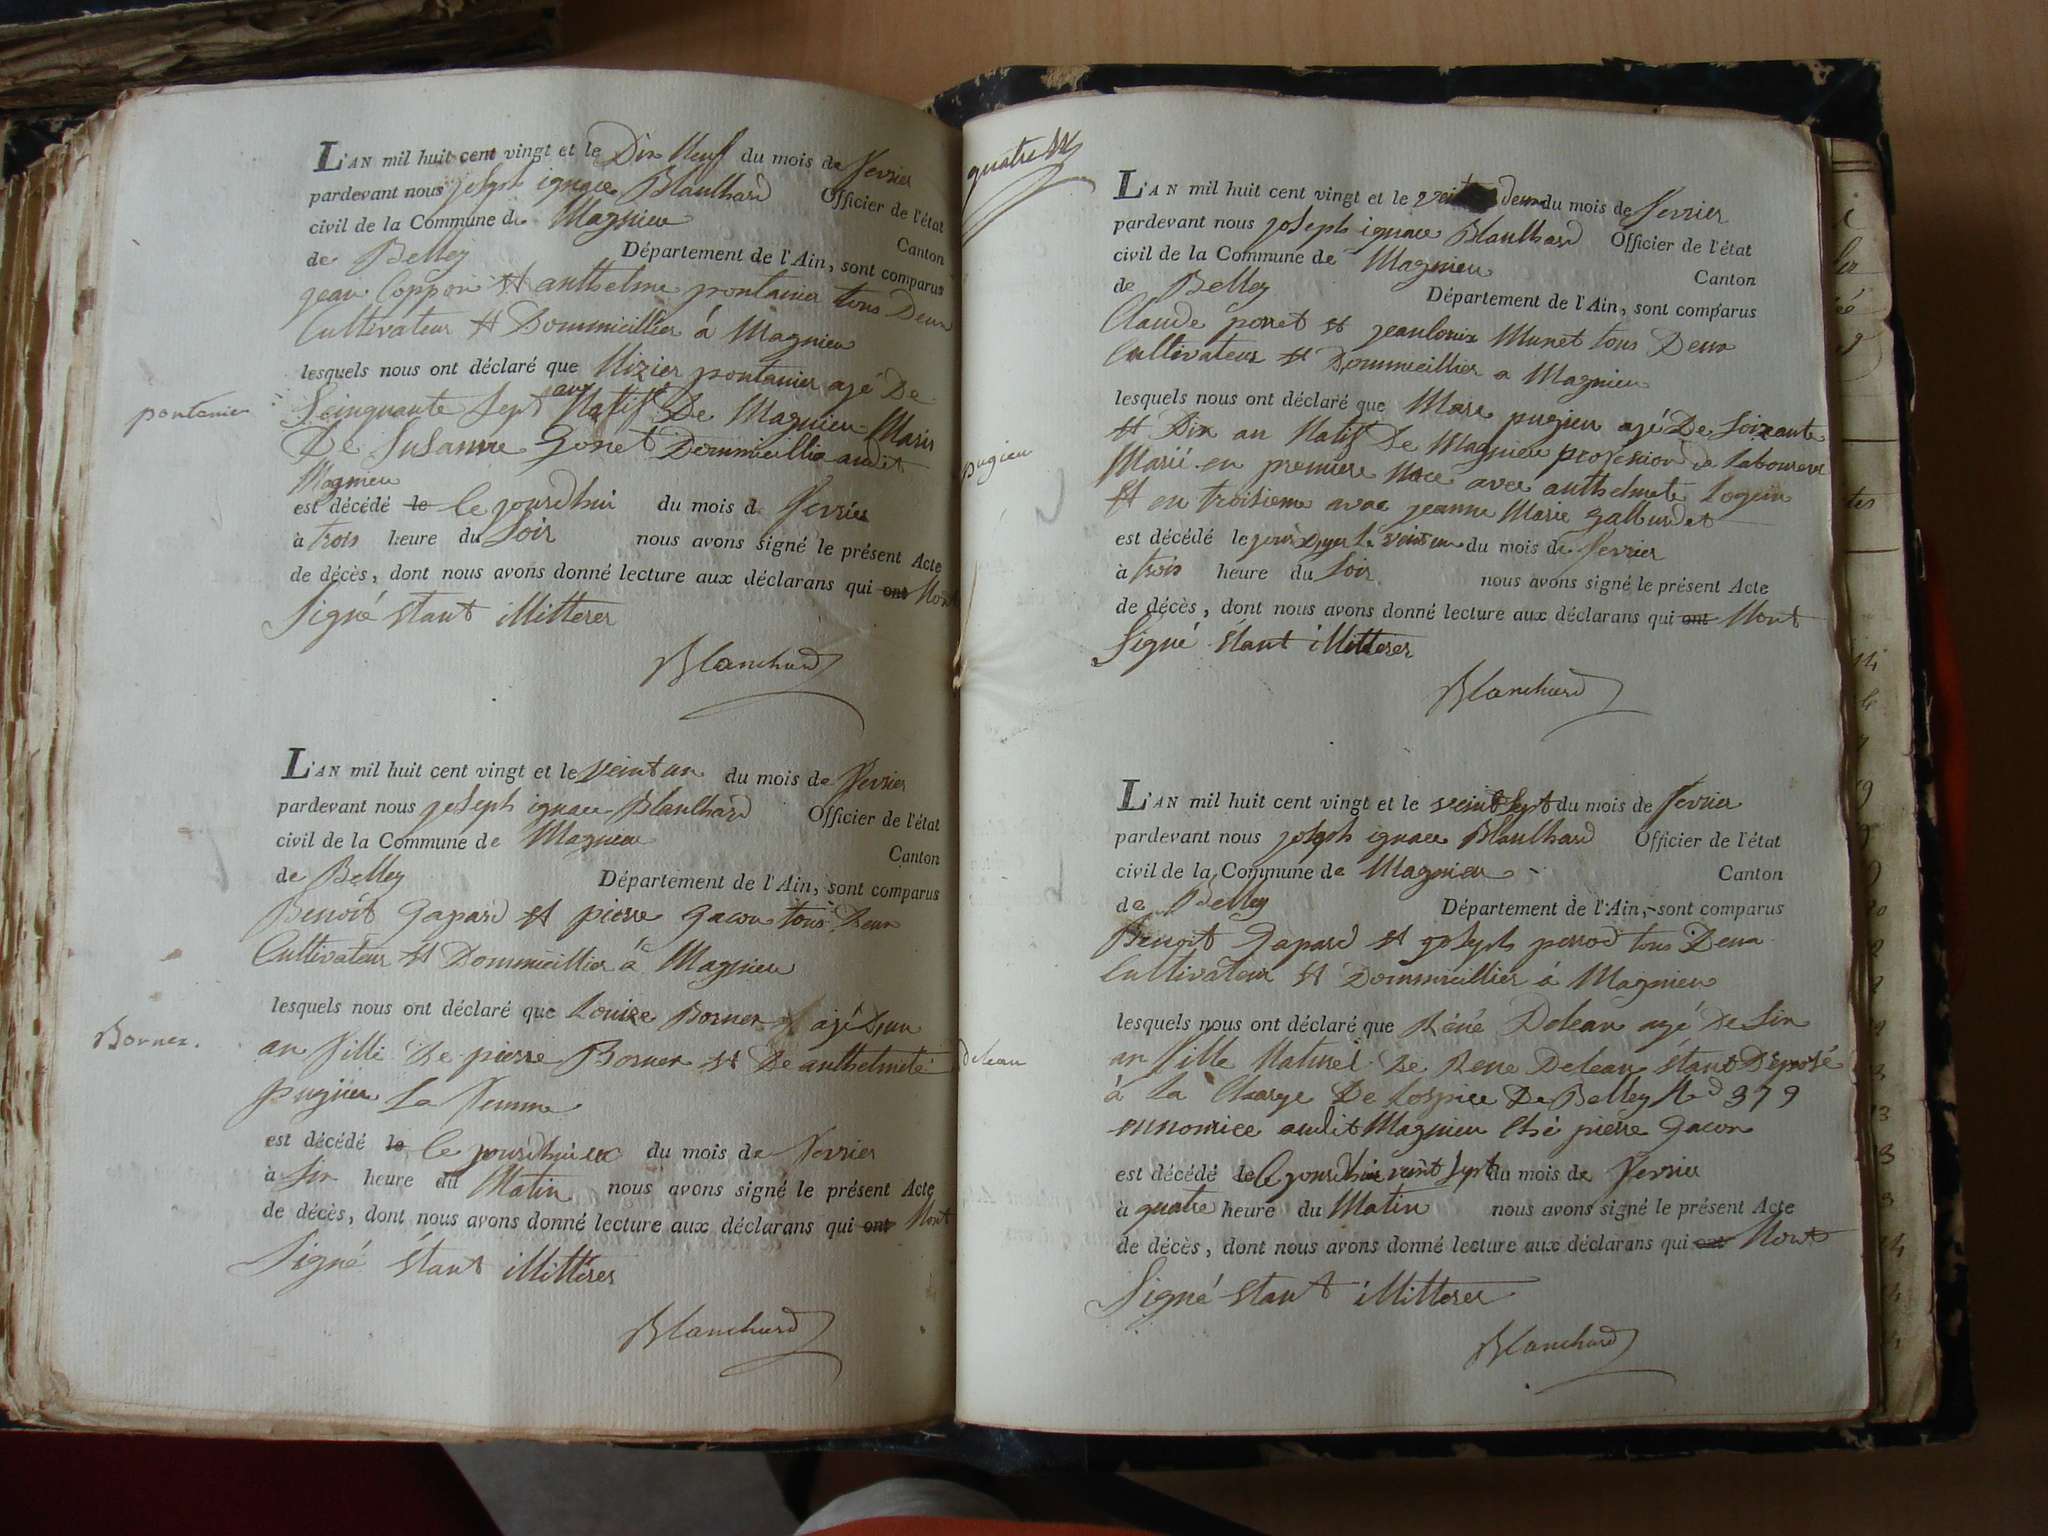 L'AN mil huit cent vingt et le Dix Neuf du mois de fevrier
pardevant nous joSeph ignace Blaulhard Officier de l'état
civil de la Commune de Magnieu Canton
de Belley Département de l'Ain, sont comparus
jean Coppon et anthelme pontanier tous Deux
Cultivateur et Dommicillier à Magnieu
lesquels nous ont déclaré que Nizier pontanier agé De
pontanier
Scinquante Sept ans Natif De Magnieu Maris
De Susanne Gonet Dommicillié audit
Magnieu
est décédé le ce jourdhui du mois de fevrier
à trois heure du Soir nous avons signé le présent Acte
de décès, dont nous avons donné lecture aux déclarans qui ont Nont
Signé étant illitterer
Blanchard
L'AN mil huit cent vingt et le veint un du mois de fevrier
pardevant nous joSeph ignace Blaulhard Officier de l'état
civil de la Commune de Magnieu Canton
de Belley Département de l'Ain, sont comparus
Benoit Gapard et pierre Gacon tous Deux
Cultivateur et Dommicillier à Magnieu
lesquels nous ont déclaré que Louise Borner agé Dun
Borner.
an fille De pierre Borner et De anthelmete
pugieu La femme
est décédé le ce jourdhui du mois de fevrier
à Six heure du Matin nous avons signé le présent Acte
de décès, dont nous avons donné lecture aux déclarans qui ont Nont
Signé étant illitterer
Blanchard
quatre
L'AN mil huit cent vingt et le deux du mois de fevrier
pardevant nous joSeph ignace Blaulhard Officier de l'état
civil de la Commune de Magnieu Canton
de Belley Département de l'Ain, sont comparus
Claude porret et jeanlouix Munet tous Deux
Cultivateur et Dommicillier a Magnieu
lesquels nous ont déclaré que Marc pugieu agé De Soixante
pugieu
et Dix an Natif De Magnieu profession de laboureur
Marié en premiere Noce avec anthelmete Logein
et en troisieme avac jeanne Marie Gallurdet
est décédé le jour dyer le veint un du mois de fevrier
à trois heure du Soir nous avons signé le présent Acte
de décès, dont nous avons donné lecture aux déclarans qui ont Nont
Signé étant illitterer
Blanchard
L'AN mil huit cent vingt et le veint Sept du mois de fevrier
pardevant nous joSeph ignace Blaulhard Officier de l'état
civil de la Commune de Magnieu Canton
de Belley Département de l'Ain, sont comparus
Benoit Gapard et joSeph perrod tous Deux
Cultivateur et Dommicillier à Magnieu
lesquels nous ont déclaré que Réné Delean agé de Six
delean
an fille Naturel De Rene Delean étant Déposé
à La Charge De Lospice De Belley No 379
ennonrice audit Magnieu Ché pierre Gacon
est décédé le ce jourdhui veint Sept du mois de fevrier
à quatre heure du Matin nous avons signé le présent Acte
de décès, dont nous avons donné lecture aux déclarans qui ont Nont
Signé étant illitterer
Blanchard